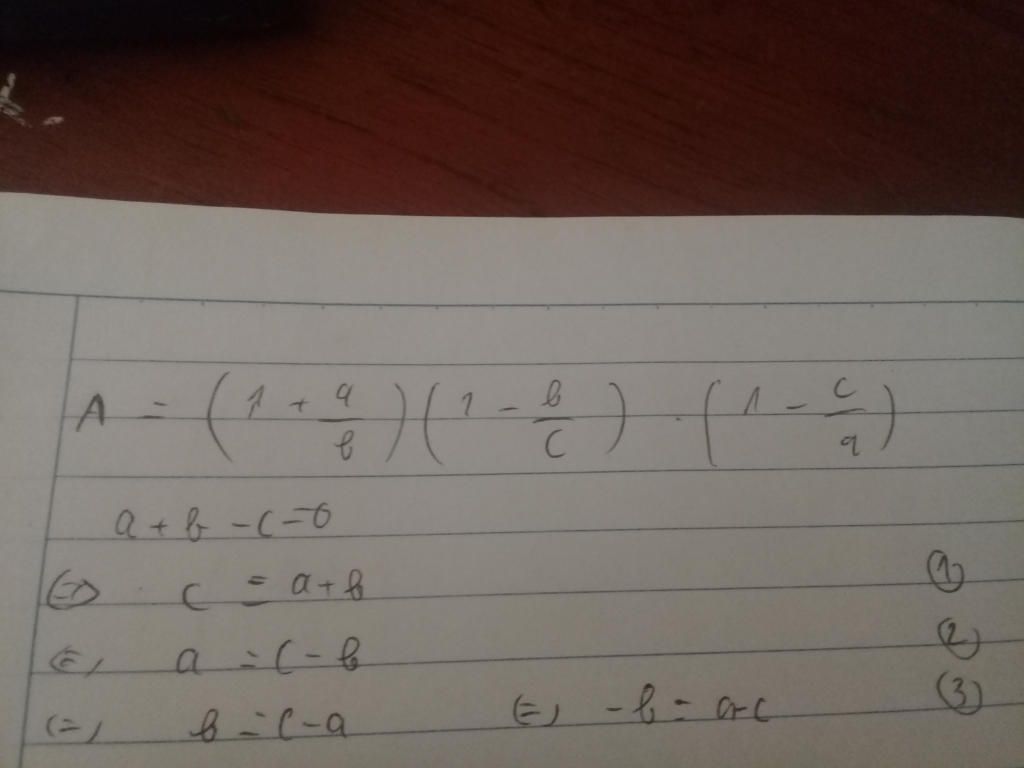 A = (1 + a/b)(1 - b/c) . (1 - c/a)
a + b - c = 0
(=) c = a + b (1)
(=, a = c - b (2)
(=, b = c - a (=, - b = a - c (3)